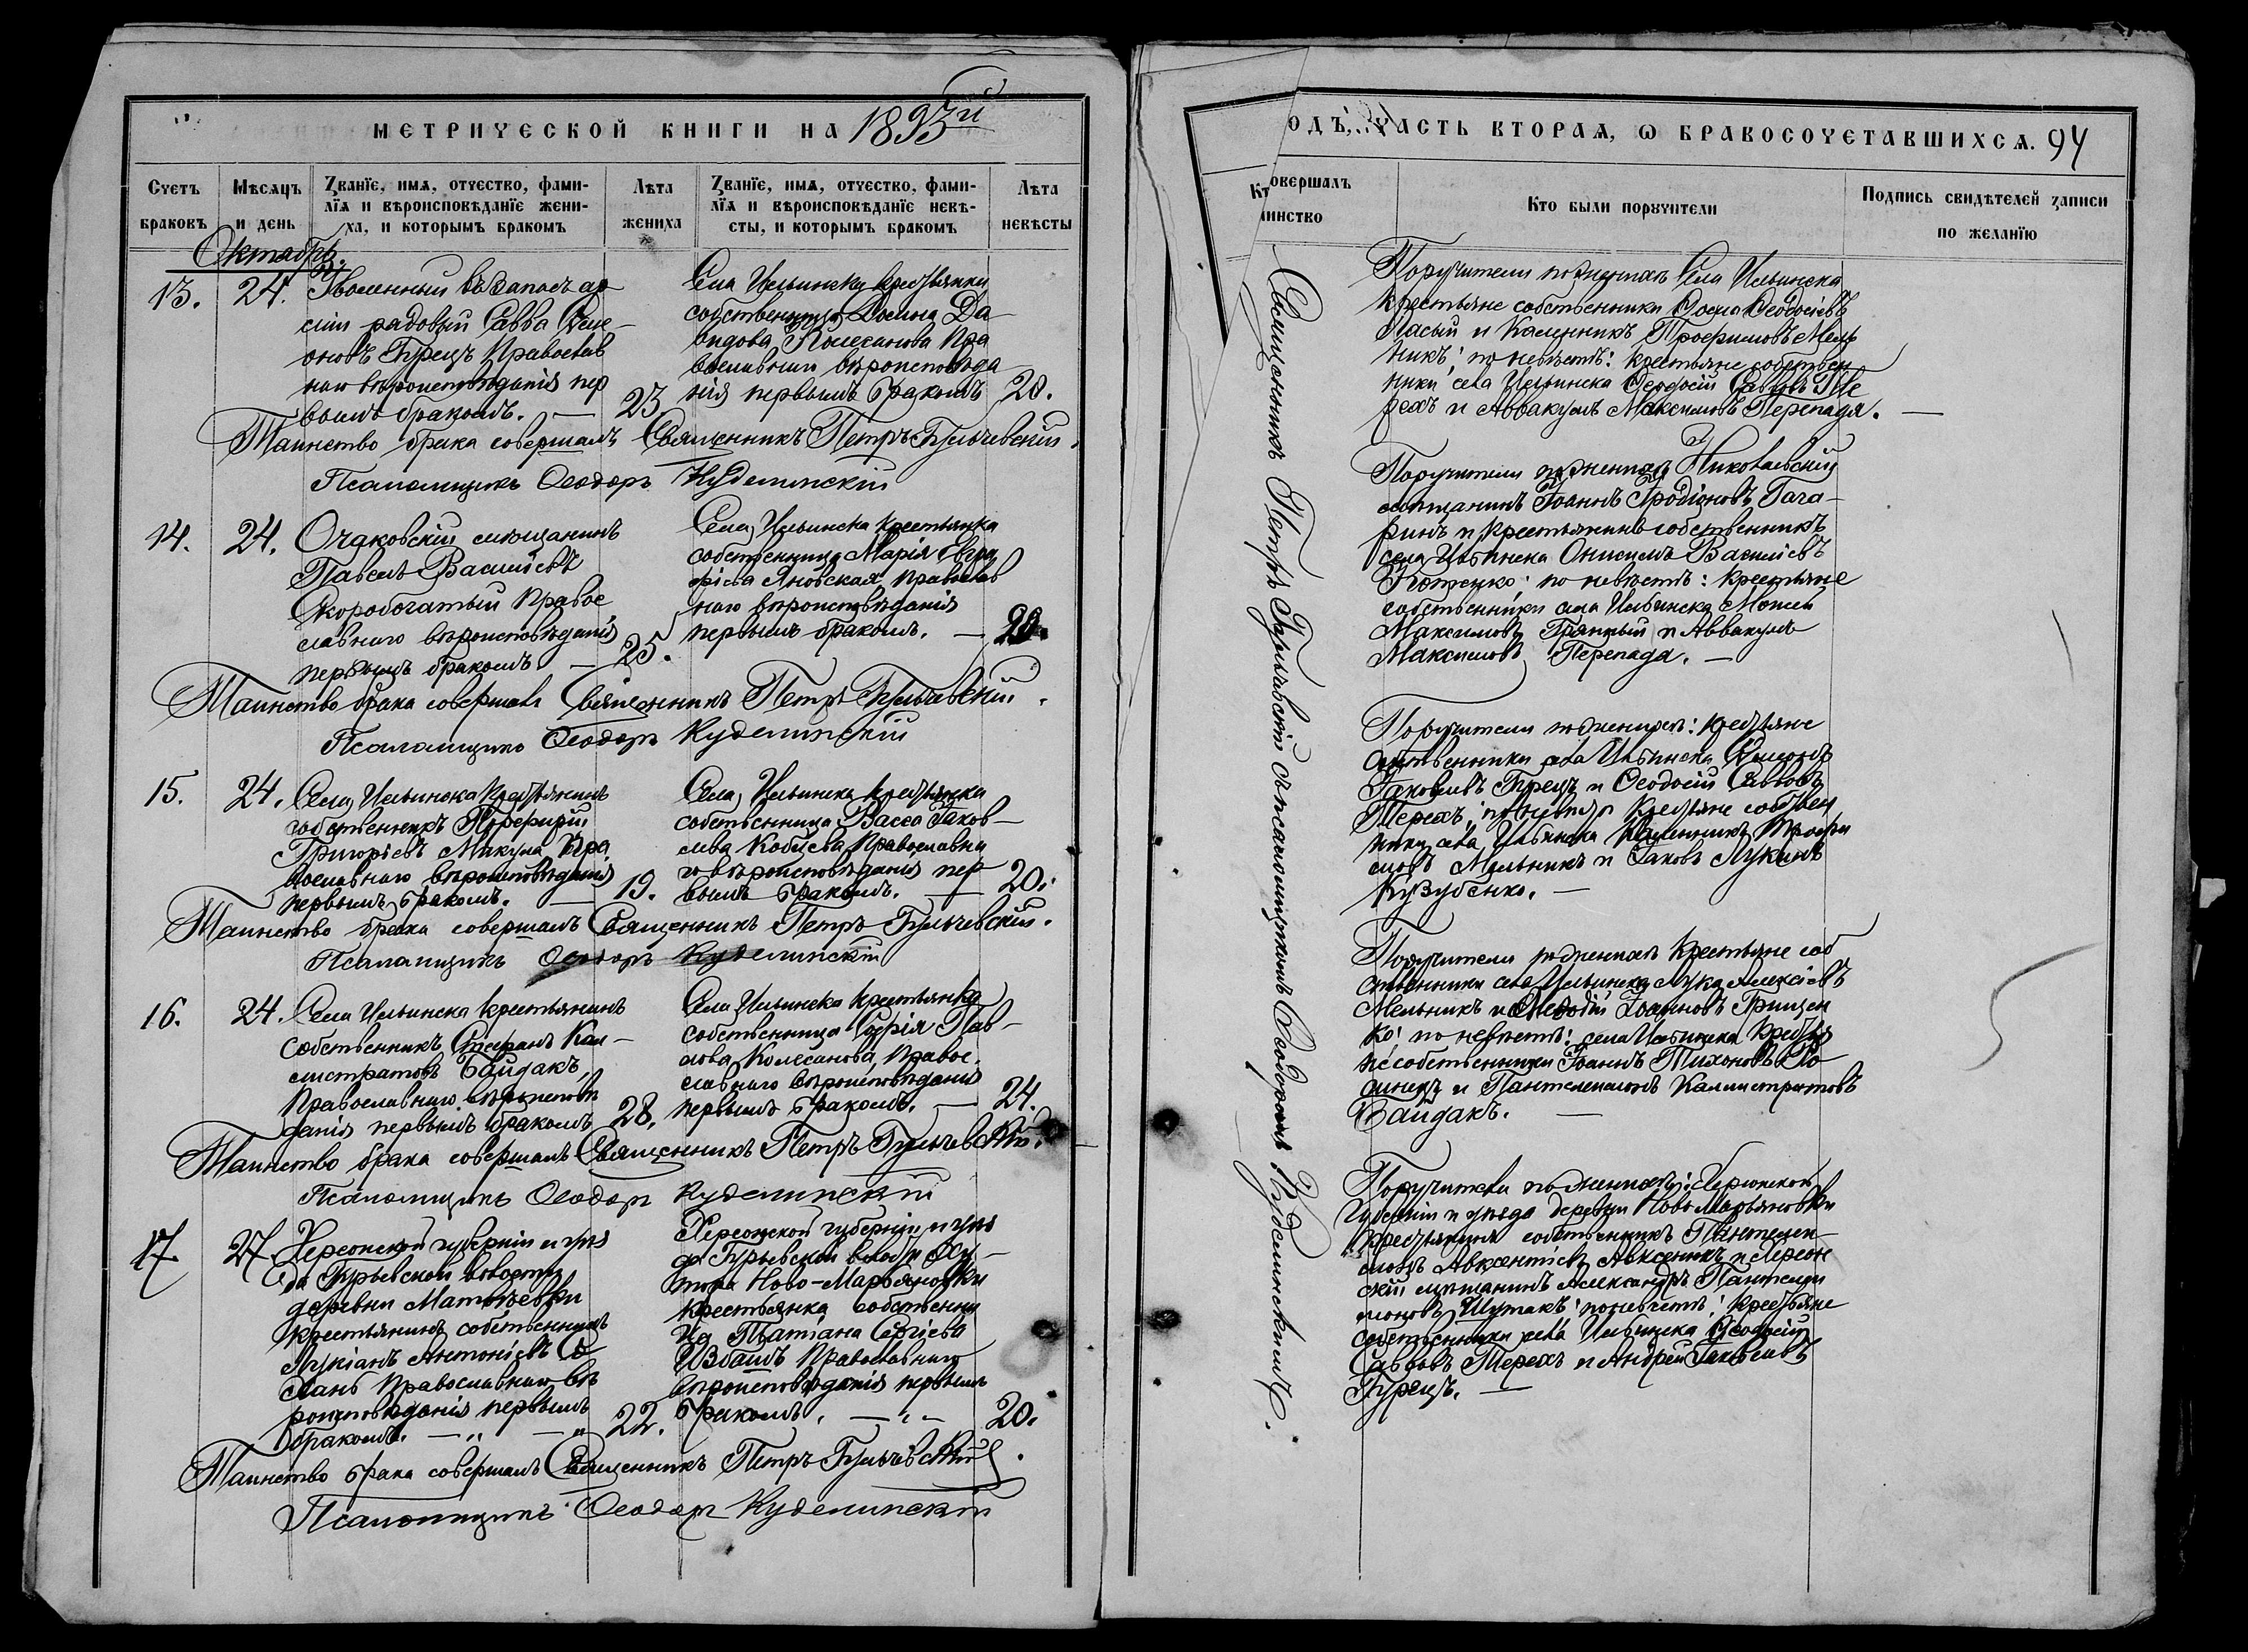 МЕТРИЧЕСКОЙ КНИГИ НА 1893й
Счетъ браковъ
Мѣсяцъ и день
Званїе, имя, отчество, фами-
лїя и вѣроисповѣданїе жени-
ха, и которымъ бракомъ
Лѣта жениха
Званїе, имя, отчество, фами-
лїя и вѣроисповѣданїе невѣ-
сты, и которымъ бракомъ
Лѣта невѣсты
Октябрь.
13.
24.
Уволенный въ запасъ ар
міи рядовый Савва
оновъ Гурецъ Православ
наго вѣроисповѣданія пер
вымъ бракомъ. —
23
Села Ильинска крестьянка
собственница Да
видова Колесанова Пра
вославнаго вѣроисповѣда
нія первымъ бракомъ
20.
Таинство брака совершалъ Священникъ Петръ Гульчевскій.
Псаломщикъ Ѳеодоръ Куделинскій
14.
24.
Очаковскій мѣщанинъ
Павелъ Васильевъ
Скоробогатый Правос
лавнаго вѣроисповѣданія
первымъ бракомъ —
25.
Села Ильинска крестьянка
собственница Марія
Яновская Православ
наго вѣроисповѣданія
первымъ бракомъ. —
Таинство брака совершалъ Священникъ Петръ Гульчевскій.
Псаломщикъ Ѳеодоръ Куделинскій
15.
24.
Села Ильинска Крестьянинъ
собственникъ Порфирій
Григоріевъ Макуха Пра
вославнаго вѣроисповѣданія
первымъ бракомъ. —
19.
Села Ильинска крестьянка
собственница Васса Іаков-
лева Кобцева Православна
го вѣроисповѣданія пер
вымъ бракомъ. —
20.
Таинство брака совершалъ Священникъ Петръ Гульчевскій.
Псаломщикъ Ѳеодоръ Куделинскій
16.
24.
Села Ильинска крестьянинъ
собственникъ Стефанъ Кал-
листратовъ Байдакъ,
Православнаго вѣроисповѣ
данія первымъ бракомъ
28.
Села Ильинска крестьянка
собственница Софія Пав-
лова Колесанова, Правос
лавнаго вѣроисповѣданія
первымъ бракомъ. —
24.
Таинство брака совершалъ Священникъ Петръ Гульчевскій.
Псаломщикъ Ѳеодоръ Куделинскій
17
27.
Херсонской губерніи и уѣз
да Гурьевской волости
деревни Матвѣевки
крестьянинъ собственникъ
Лукіанъ Антоніевъ
Православнаго вѣ
роисповѣданія первымъ
бракомъ. — „ — „
22.
Херсонской губерніи и уѣз
да Гурьевской волости Ху-
тора Ново-Марьяновки
крестьянка собственни
ца Татіана Сергіева
Избашъ Православнаго
вѣроисповѣданія первымъ
бракомъ. — „ —
20.
Таинство брака совершалъ Священникъ Петръ Гульчевскій.
Псаломщикъ Ѳеодоръ Куделинскій
ОДЪ, ЧАСТЬ ВТОРАЯ, Ѡ БРАКОСОЧЕТАВШИХСЯ. 94
Кт овершалъ
инство
Кто были поручители
Подпись свидѣтелей записи
по желанїю
Священникъ Петръ Гульчевскій съ псаломщикомъ Ѳеодоромъ Куделинскимъ.
Поручители по женихѣ Села Ильинска
крестьяне собственники Ѳеодосіевъ
Ласый и Каленникъ Трофимовъ Мель
никъ; по невѣстѣ: крестьяне собствен
ники села Ильинска Ѳеодосій Саввовъ Те
рехъ и Аввакумъ Максимовъ Перепада. —
Поручители по женихѣ Николаевскій
мѣщанинъ Іоаннъ Иродіоновъ Гага-
ринъ и крестьянинъ собственникъ
села Ильинска Онисимъ Васильевъ
; по невѣстѣ: крестьяне
собственники села Ильинска Моисей
Максимовъ и Аввакумъ
Максимовъ Перепада. —
Поручители по женихѣ: крестьяне
собственники села Ильинска
Іаковлевъ Гурецъ и Ѳеодосій Саввовъ
Терехъ; по невѣстѣ крестьяне собствен
ники села Ильинска Каленникъ Трофи
мовъ Мельникъ и Іаковъ Лукинъ
Кузубенко. —
Поручители по женихѣ Крестьяне соб
ственники села Ильинска Лука Алексіевъ
Мельникъ и Меѳодій Іоанновъ Грищен
ко; по невѣстѣ: села Ильинска Крестья
не собственники Іоаннъ Тихоновъ
и Пантелеимонъ Каллистратовъ
Байдакъ. —
Поручители по женихѣ: Херсонской
Губерніи и уѣзда деревни Ново Марьяновки
крестьянинъ собственникъ Пантелеи-
монъ Авксентіевъ и Херсон
скій мѣщанинъ Александръ Пантелеи
моновъ Шутакъ; по невѣстѣ: крестьяне
собственники села Ильинска Ѳеодосій
Саввовъ Терехъ и Андрей Іаковлевъ
Гурецъ. —